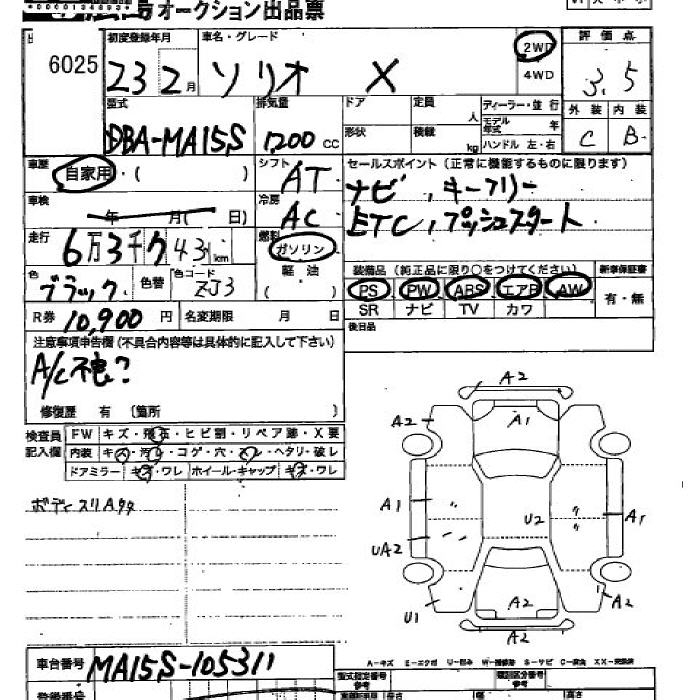 オークション出品票
初度登録年月 車名・グレード 評価点
6025 23 2月 ソリオ X 2WD 4WD 3.5
型式 排気量 ドア 定員 人 ディーラー・並行 外装 内装
DBA-MA15S 1,200cc 形状 積載 kg モデル年式 年 ハンドル 左・右 C B
車歴 自家用・( ) シフト AT セールスポイント(正常に機能するものに限ります)
車検 年 月( 日) 冷房 AC ナビ、キーフリー
ETC、プッシュスタート
走行 6万3千743km 燃料 ガソリン
軽油
( )
装備品(純正品に限り○をつけてください) 新車保証書
色 ブラック 色替 色コード ZJ3 PS PW ABS エアB AW 有・無
SR ナビ TV カワ
R券 10,900円 名変期限 月 日 後日品
注意事項申告欄(不具合内容等は具体的に記入して下さい)
A/C不良?
修復歴 有 〔箇所 〕
検査員記入欄 FW キズ・飛石・ヒビ割・リペア跡・X要
内装 キズ・汚レ・コゲ・穴・スレ・ヘタリ・破レ
ドアミラー キズ・ワレ ホイール・キャップ キズ・ワレ
ボディスリA多
A2
A2 A1
A1 U2 A1
UA2
U1 A2 A2
A2
A-キズ E-エクボ U-凹み W-補修跡 S-サビ C-腐食 XX-交換済
車台番号 MA15S-105311 型式指定番号 参考 類別区分番号 参考
登録番号 長さ 幅 高さ